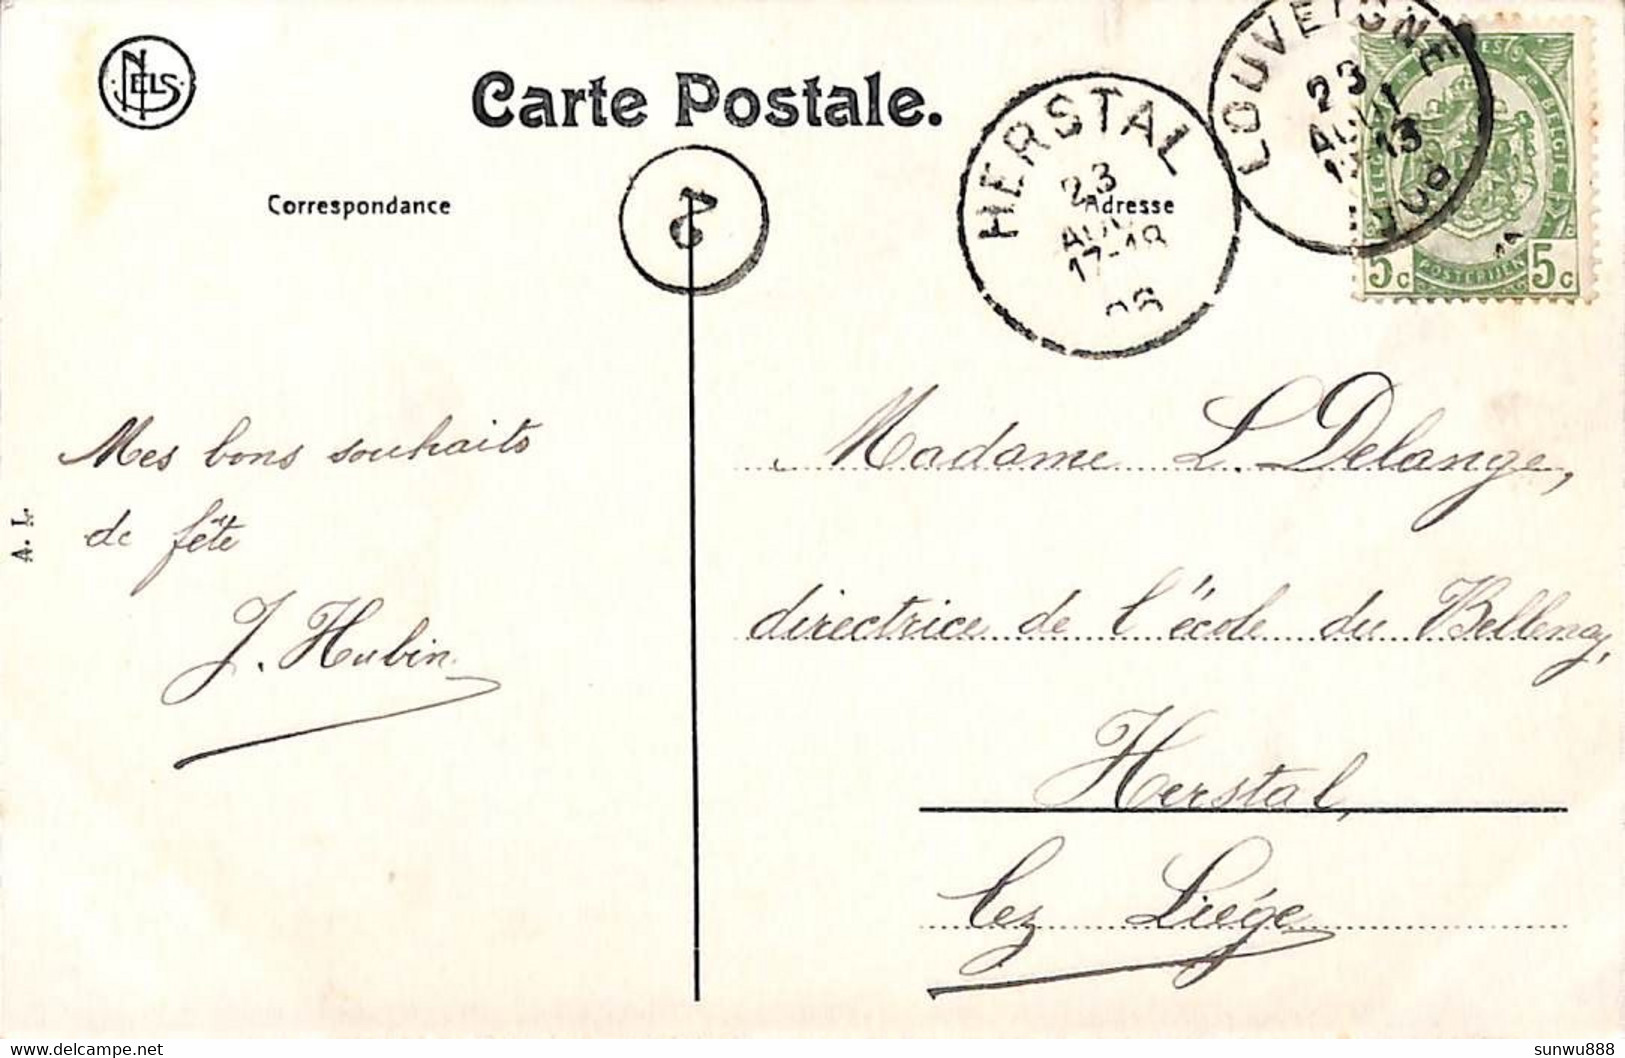 NELS
Carte Postale.
Correspondance
Adresse
HERSTAL
23
AOU
17-18
LOUVEIGNE
23
AOU
13
5c POSTERIJEN 5c
Mes bons souhaits
de fête
J. Hubin
A. L.
Madame L. Delange,
directrice de l'école du Bellenay,
Herstal,
lez Liége
sunwu888